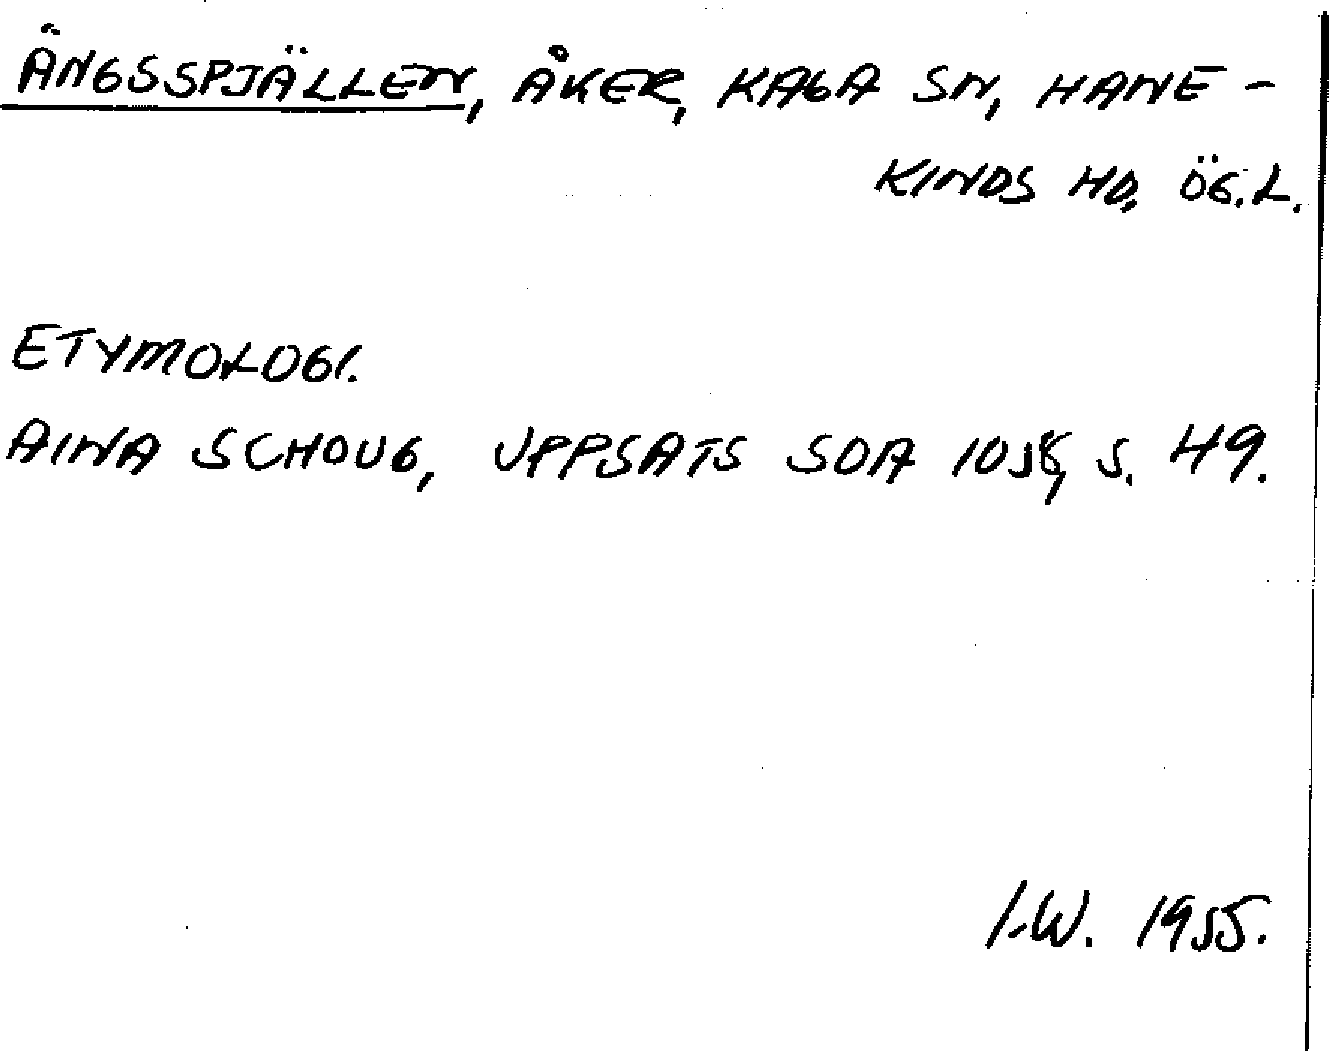 ÄNGSSPJÄLLEN, ÅKER, KAGA SN, HANE-
KINDS HD, ÖG.L.
ETYMOLOGI.
AINA SCHOUG, UPPSATS SOA 1058, S. 49.
I.W. 1955.